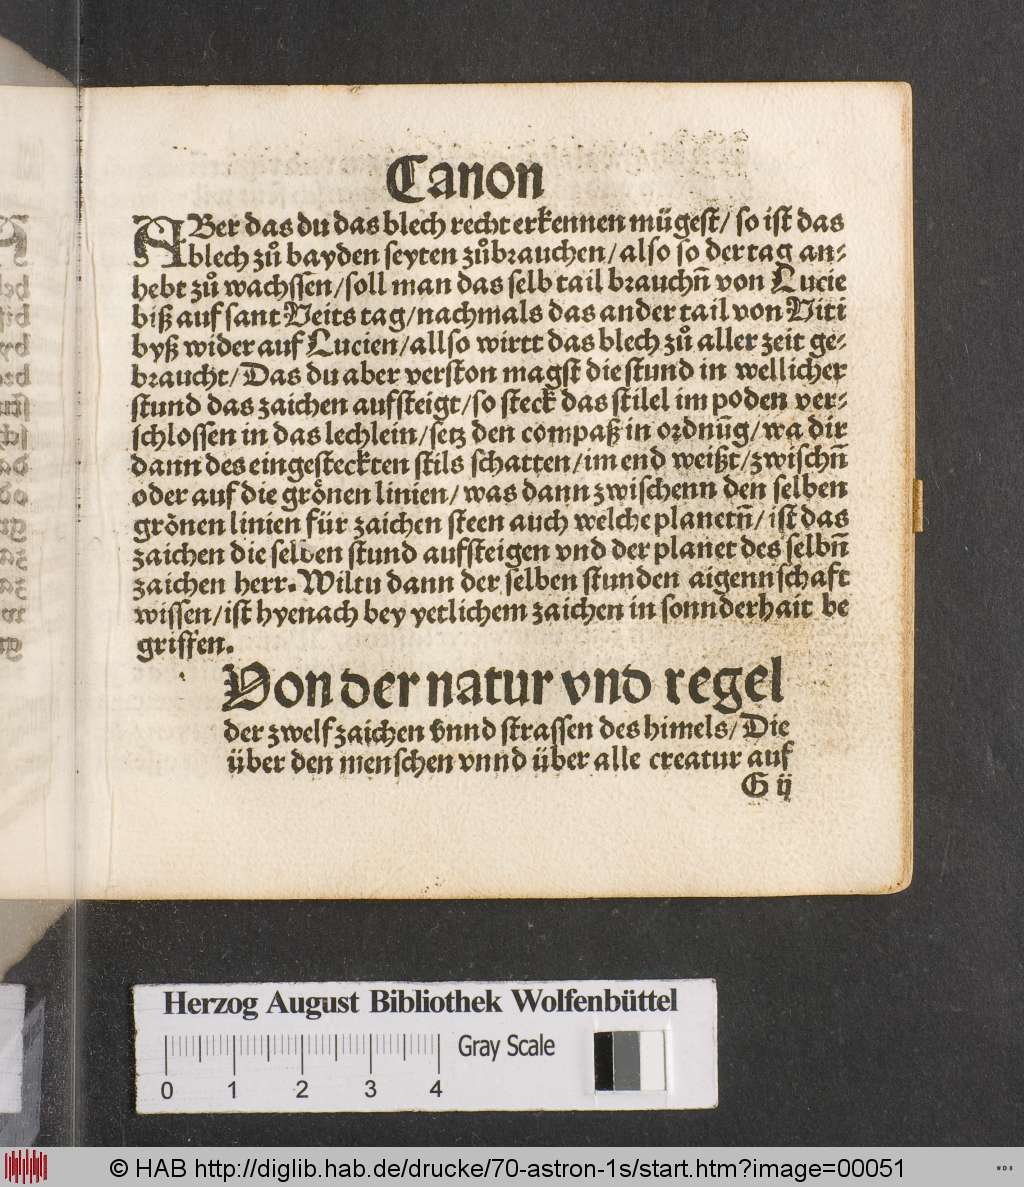 Canon
ABer das du das blech recht erkennen mügest/ so ist das
blech zů bayden seyten zůbrauchen/ also so der tag an-
hebt zů wachssen/ soll man das selb tail brauchñ von Lucie
biß auf sant Veits tag/ nachmals das ander tail von Viti
byß wider auf Lucien/ allso wirtt das blech zů aller zeit ge-
braucht/ Das du aber verston magst die stund in wellicher
stund das zaichen aufsteigt/ so steck das stilel im poden ver-
schlossen in das lechlein/ setz den compaß in ordnũg/ wa dir
dann des eingesteckten stils schatten/ im end weißt/ zwischñ
oder auf die grönen linien/ was dann zwischenn den selben
grönen linien für zaichen steen auch welche planetñ/ ist das
zaichen die selben stund aufsteigen vnd der planet des selbñ
zaichen herr. Wiltu dann der selben stunden aigennschaft
wissen/ ist hyenach bey yetlichem zaichen in sonnderhait be
griffen.
Von der natur vnd regel
der zwelf zaichen vnnd strassen des himels/ Die
über den menschen vnnd über alle creatur auf
G ij
Herzog August Bibliothek Wolfenbüttel
Gray Scale
0 1 2 3 4
© HAB http://diglib.hab.de/drucke/70-astron-1s/start.htm?image=00051